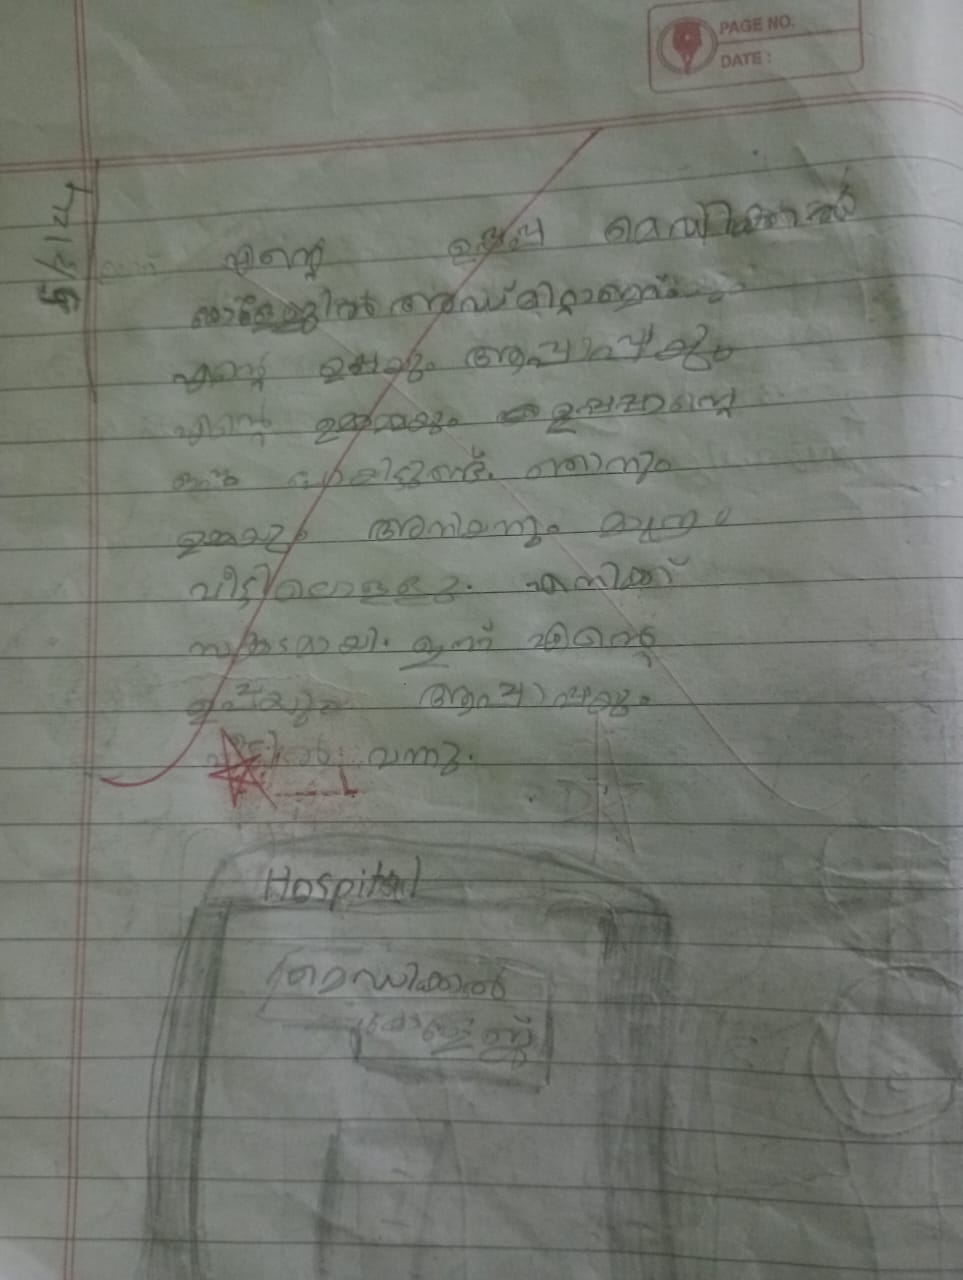 PAGE NO.
DATE :
5/2/24
എന്റെ ഉപ്പ മെഡിക്കൽ
കോളേജിൽ അഡ്മിറ്റാണ്.
എന്റെ ഉപ്പയും ആപ്പാപ്പയും
എന്റെ ഉമ്മയും ഉപ്പപ്പാന്റെ
പോയിട്ടുണ്ട്. ഞാനും
ഉമ്മയും അനിയനും മാത്രം
വീട്ടിലൊള്ളു. എനിക്ക്
സങ്കടമായി. ഇന്ന് എന്റെ
ഉപ്പയും ആപ്പാപ്പയും
വന്നു.
Hospital
മെഡിക്കൽ
കോളേജ്